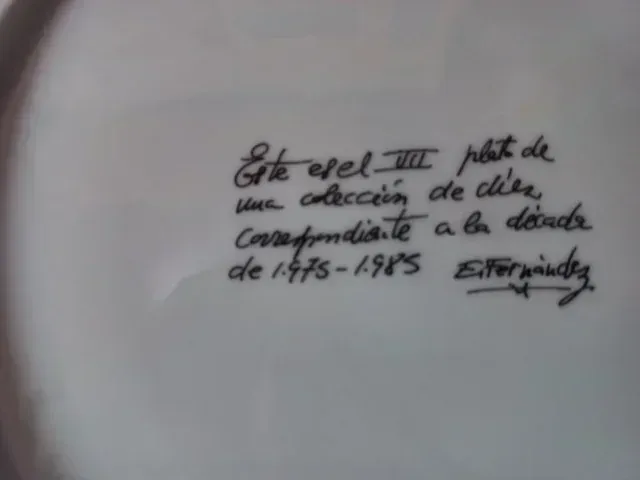 Este es el VII plato de
una colección de diez,
correspondiente a la década
de 1.975-1.985 E. Fernández